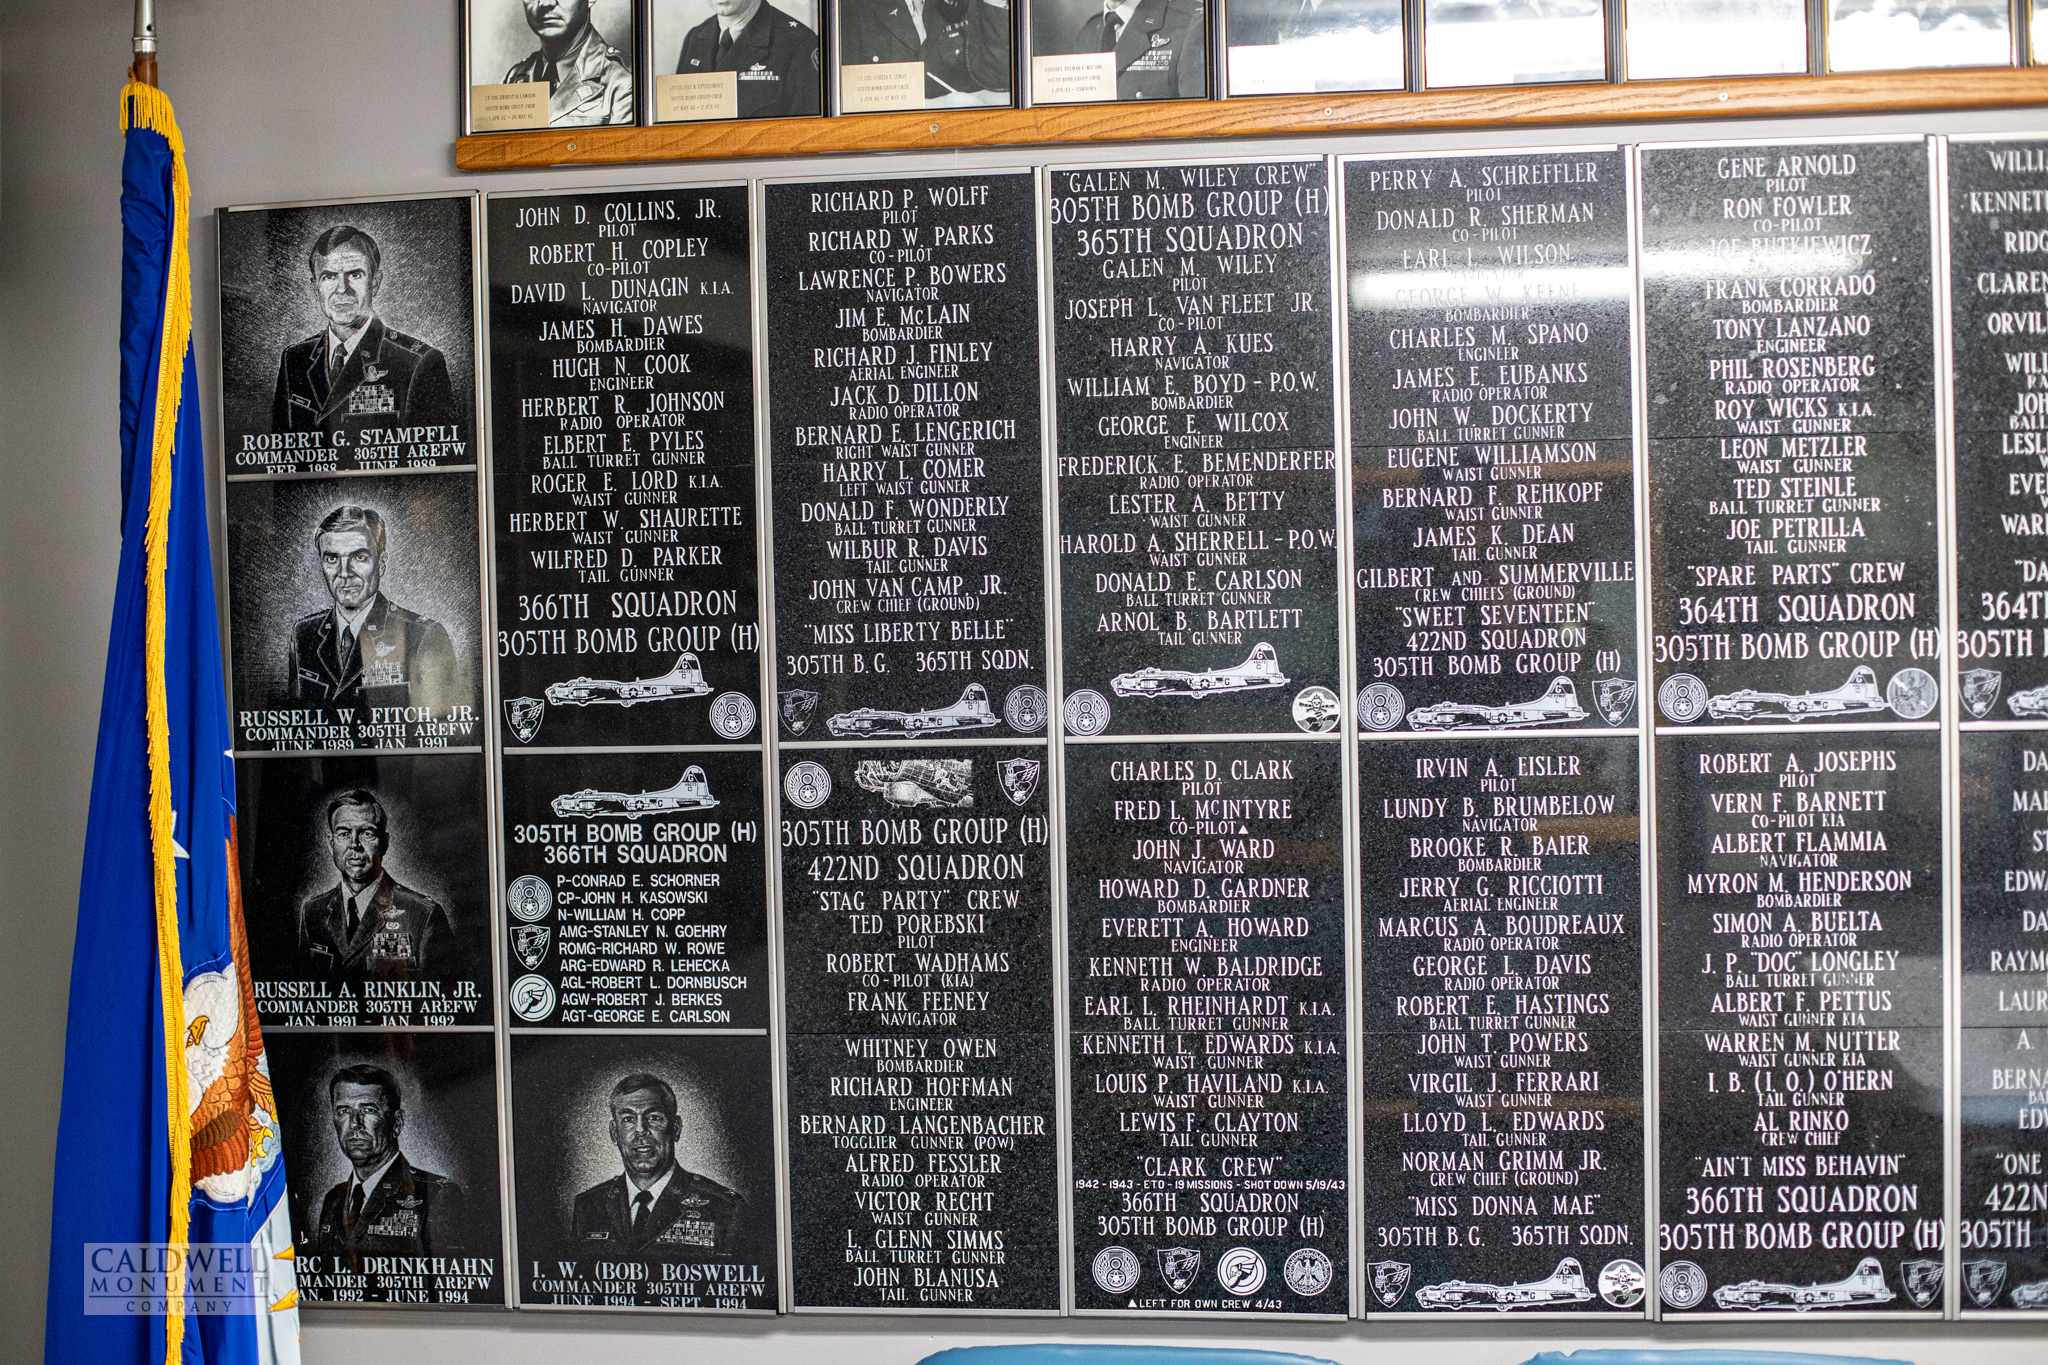 LT COL ERNEST H. LAWSON
305TH BOMB GROUP CMDR
305TH BOMB GROUP CMDR
27 MAY 42 - 2 JUN 42
LT COL CURTIS E. LEMAY
305TH BOMB GROUP CMDR
COLONEL DELMAR E. WILSON
305TH BOMB GROUP CMDR
ROBERT G. STAMPFLI
COMMANDER 305TH AREFW
FEB. 1988 - JUNE 1989
RUSSELL W. FITCH, JR.
COMMANDER 305TH AREFW
JUNE 1989 - JAN. 1991
RUSSELL A. RINKLIN, JR.
COMMANDER 305TH AREFW
JAN. 1991 - JAN. 1992
RC L. DRINKHAHN
MANDER 305TH AREFW
AN. 1992 - JUNE 1994
JOHN D. COLLINS, JR.
PILOT
ROBERT H. COPLEY
CO-PILOT
DAVID L. DUNAGIN K.I.A.
NAVIGATOR
JAMES H. DAWES
BOMBARDIER
HUGH N. COOK
ENGINEER
HERBERT R. JOHNSON
RADIO OPERATOR
ELBERT E. PYLES
BALL TURRET GUNNER
ROGER E. LORD K.I.A.
WAIST GUNNER
HERBERT W. SHAURETTE
WAIST GUNNER
WILFRED D. PARKER
TAIL GUNNER
366TH SQUADRON
305TH BOMB GROUP (H)
305TH BOMB GROUP (H)
366TH SQUADRON
P-CONRAD E. SCHORNER
CP-JOHN H. KASOWSKI
N-WILLIAM H. COPP
AMG-STANLEY N. GOEHRY
ROMG-RICHARD W. ROWE
ARG-EDWARD R. LEHECKA
AGL-ROBERT L. DORNBUSCH
AGW-ROBERT J. BERKES
AGT-GEORGE E. CARLSON
I. W. (BOB) BOSWELL
COMMANDER 305TH AREFW
JUNE 1994 - SEPT. 1994
RICHARD P. WOLFF
PILOT
RICHARD W. PARKS
CO-PILOT
LAWRENCE P. BOWERS
NAVIGATOR
JIM E. McLAIN
BOMBARDIER
RICHARD J. FINLEY
AERIAL ENGINEER
JACK D. DILLON
RADIO OPERATOR
BERNARD E. LENGERICH
RIGHT WAIST GUNNER
HARRY L. COMER
LEFT WAIST GUNNER
DONALD F. WONDERLY
BALL TURRET GUNNER
WILBUR R. DAVIS
TAIL GUNNER
JOHN VAN CAMP, JR.
CREW CHIEF (GROUND)
"MISS LIBERTY BELLE"
305TH B.G. 365TH SQDN.
305TH BOMB GROUP (H)
422ND SQUADRON
"STAG PARTY" CREW
TED POREBSKI
PILOT
ROBERT WADHAMS
CO-PILOT (KIA)
FRANK FEENEY
NAVIGATOR
WHITNEY OWEN
BOMBARDIER
RICHARD HOFFMAN
ENGINEER
BERNARD LANGENBACHER
TOGGLIER GUNNER (POW)
ALFRED FESSLER
RADIO OPERATOR
VICTOR RECHT
WAIST GUNNER
L. GLENN SIMMS
BALL TURRET GUNNER
JOHN BLANUSA
TAIL GUNNER
"GALEN M. WILEY CREW"
305TH BOMB GROUP (H)
365TH SQUADRON
GALEN M. WILEY
PILOT
JOSEPH L. VAN FLEET JR.
CO-PILOT
HARRY A. KUES
NAVIGATOR
WILLIAM E. BOYD - P.O.W.
BOMBARDIER
GEORGE E. WILCOX
ENGINEER
FREDERICK E. BEMENDERFER
RADIO OPERATOR
LESTER A. BETTY
WAIST GUNNER
HAROLD A. SHERRELL - P.O.W.
WAIST GUNNER
DONALD E. CARLSON
BALL TURRET GUNNER
ARNOL B. BARTLETT
TAIL GUNNER
CHARLES D. CLARK
PILOT
FRED L. McINTYRE
CO-PILOT▲
JOHN J. WARD
NAVIGATOR
HOWARD D. GARDNER
BOMBARDIER
EVERETT A. HOWARD
ENGINEER
KENNETH W. BALDRIDGE
RADIO OPERATOR
EARL L. RHEINHARDT K.I.A.
BALL TURRET GUNNER
KENNETH L. EDWARDS K.I.A.
WAIST GUNNER
LOUIS P. HAVILAND K.I.A.
WAIST GUNNER
LEWIS F. CLAYTON
TAIL GUNNER
"CLARK CREW"
1942 - 1943 - ETO - 19 MISSIONS - SHOT DOWN 5/19/43
366TH SQUADRON
305TH BOMB GROUP (H)
▲LEFT FOR OWN CREW 4/43
PERRY A. SCHREFFLER
PILOT
DONALD R. SHERMAN
CO-PILOT
EARL I. WILSON
NAVIGATOR
GEORGE W. KEENE
BOMBARDIER
CHARLES M. SPANO
ENGINEER
JAMES E. EUBANKS
RADIO OPERATOR
JOHN W. DOCKERTY
BALL TURRET GUNNER
EUGENE WILLIAMSON
WAIST GUNNER
BERNARD F. REHKOPF
WAIST GUNNER
JAMES K. DEAN
TAIL GUNNER
GILBERT AND SUMMERVILLE
CREW CHIEFS (GROUND)
"SWEET SEVENTEEN"
422ND SQUADRON
305TH BOMB GROUP (H)
IRVIN A. EISLER
PILOT
LUNDY B. BRUMBELOW
NAVIGATOR
BROOKE R. BAIER
BOMBARDIER
JERRY G. RICCIOTTI
AERIAL ENGINEER
MARCUS A. BOUDREAUX
RADIO OPERATOR
GEORGE L. DAVIS
RADIO OPERATOR
ROBERT E. HASTINGS
BALL TURRET GUNNER
JOHN T. POWERS
WAIST GUNNER
VIRGIL J. FERRARI
WAIST GUNNER
LLOYD L. EDWARDS
TAIL GUNNER
NORMAN GRIMM JR.
CREW CHIEF (GROUND)
"MISS DONNA MAE"
305TH B.G. 365TH SQDN.
GENE ARNOLD
PILOT
RON FOWLER
CO-PILOT
JOE BUTKIEWICZ
FRANK CORRADO
BOMBARDIER
TONY LANZANO
ENGINEER
PHIL ROSENBERG
RADIO OPERATOR
ROY WICKS K.I.A.
WAIST GUNNER
LEON METZLER
WAIST GUNNER
TED STEINLE
BALL TURRET GUNNER
JOE PETRILLA
TAIL GUNNER
"SPARE PARTS" CREW
364TH SQUADRON
305TH BOMB GROUP (H)
ROBERT A. JOSEPHS
PILOT
VERN F. BARNETT
CO-PILOT KIA
ALBERT FLAMMIA
NAVIGATOR
MYRON M. HENDERSON
BOMBARDIER
SIMON A. BUELTA
RADIO OPERATOR
J. P. "DOC" LONGLEY
BALL TURRET GUNNER
ALBERT F. PETTUS
WAIST GUNNER KIA
WARREN M. NUTTER
WAIST GUNNER KIA
I. B. (I. O.) O'HERN
TAIL GUNNER
AL RINKO
CREW CHIEF
"AIN'T MISS BEHAVIN"
366TH SQUADRON
305TH BOMB GROUP (H)
WILLI
KENNET
RIDG
CLAREN
ORVIL
WILL
JOH
LESL
EVE
WAR
"DA
364T
305TH
DA
MA
ST
EDWA
DA
RAYMO
LAUR
A.
BERNA
EDW
"ONE
422N
305TH
CALDWELL
MONUMENT
COMPANY